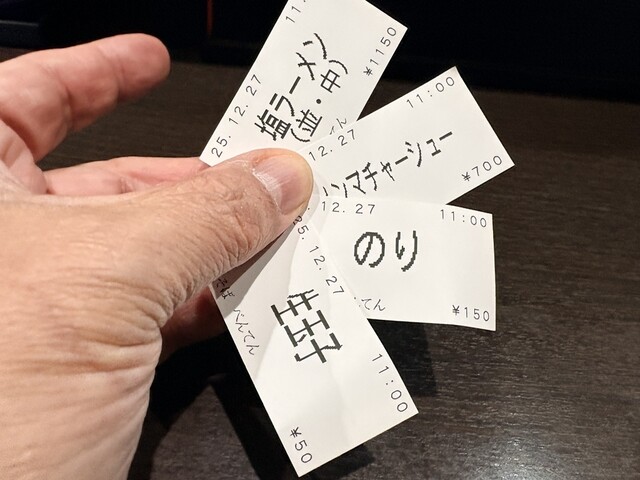 11:
塩ラーメン
(並・中)
¥1150
25.12.27
11:00
ンマチャーシュー
¥700
12.27
11:00
のり
¥150
12.27
てん
11:00
生玉子
¥50
25.12.27
そば べんてん